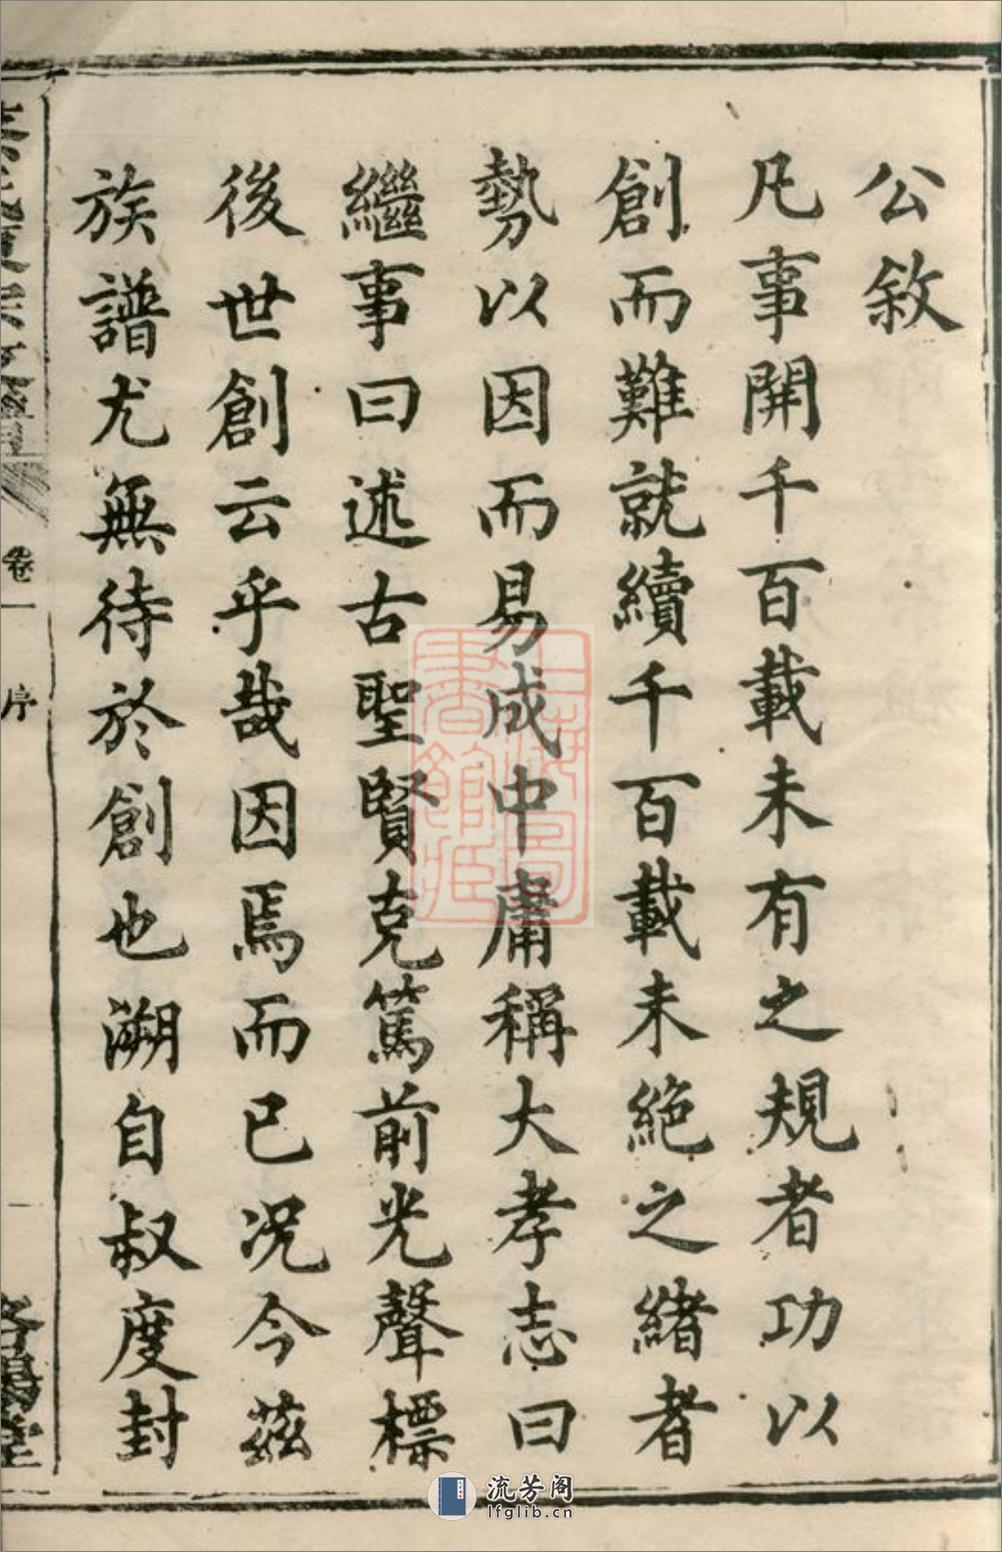 公敘
凡事開千百載未有之規者功以
創而難就續千百載未絶之緒者
勢以因而易成中庸稱大孝志曰
繼事曰述古聖賢克篤前光聲標
後世創云乎哉因焉而已況今茲
族譜尤無待於創也溯自叔度封
卷一
序
流芳阁
lfglib.cn